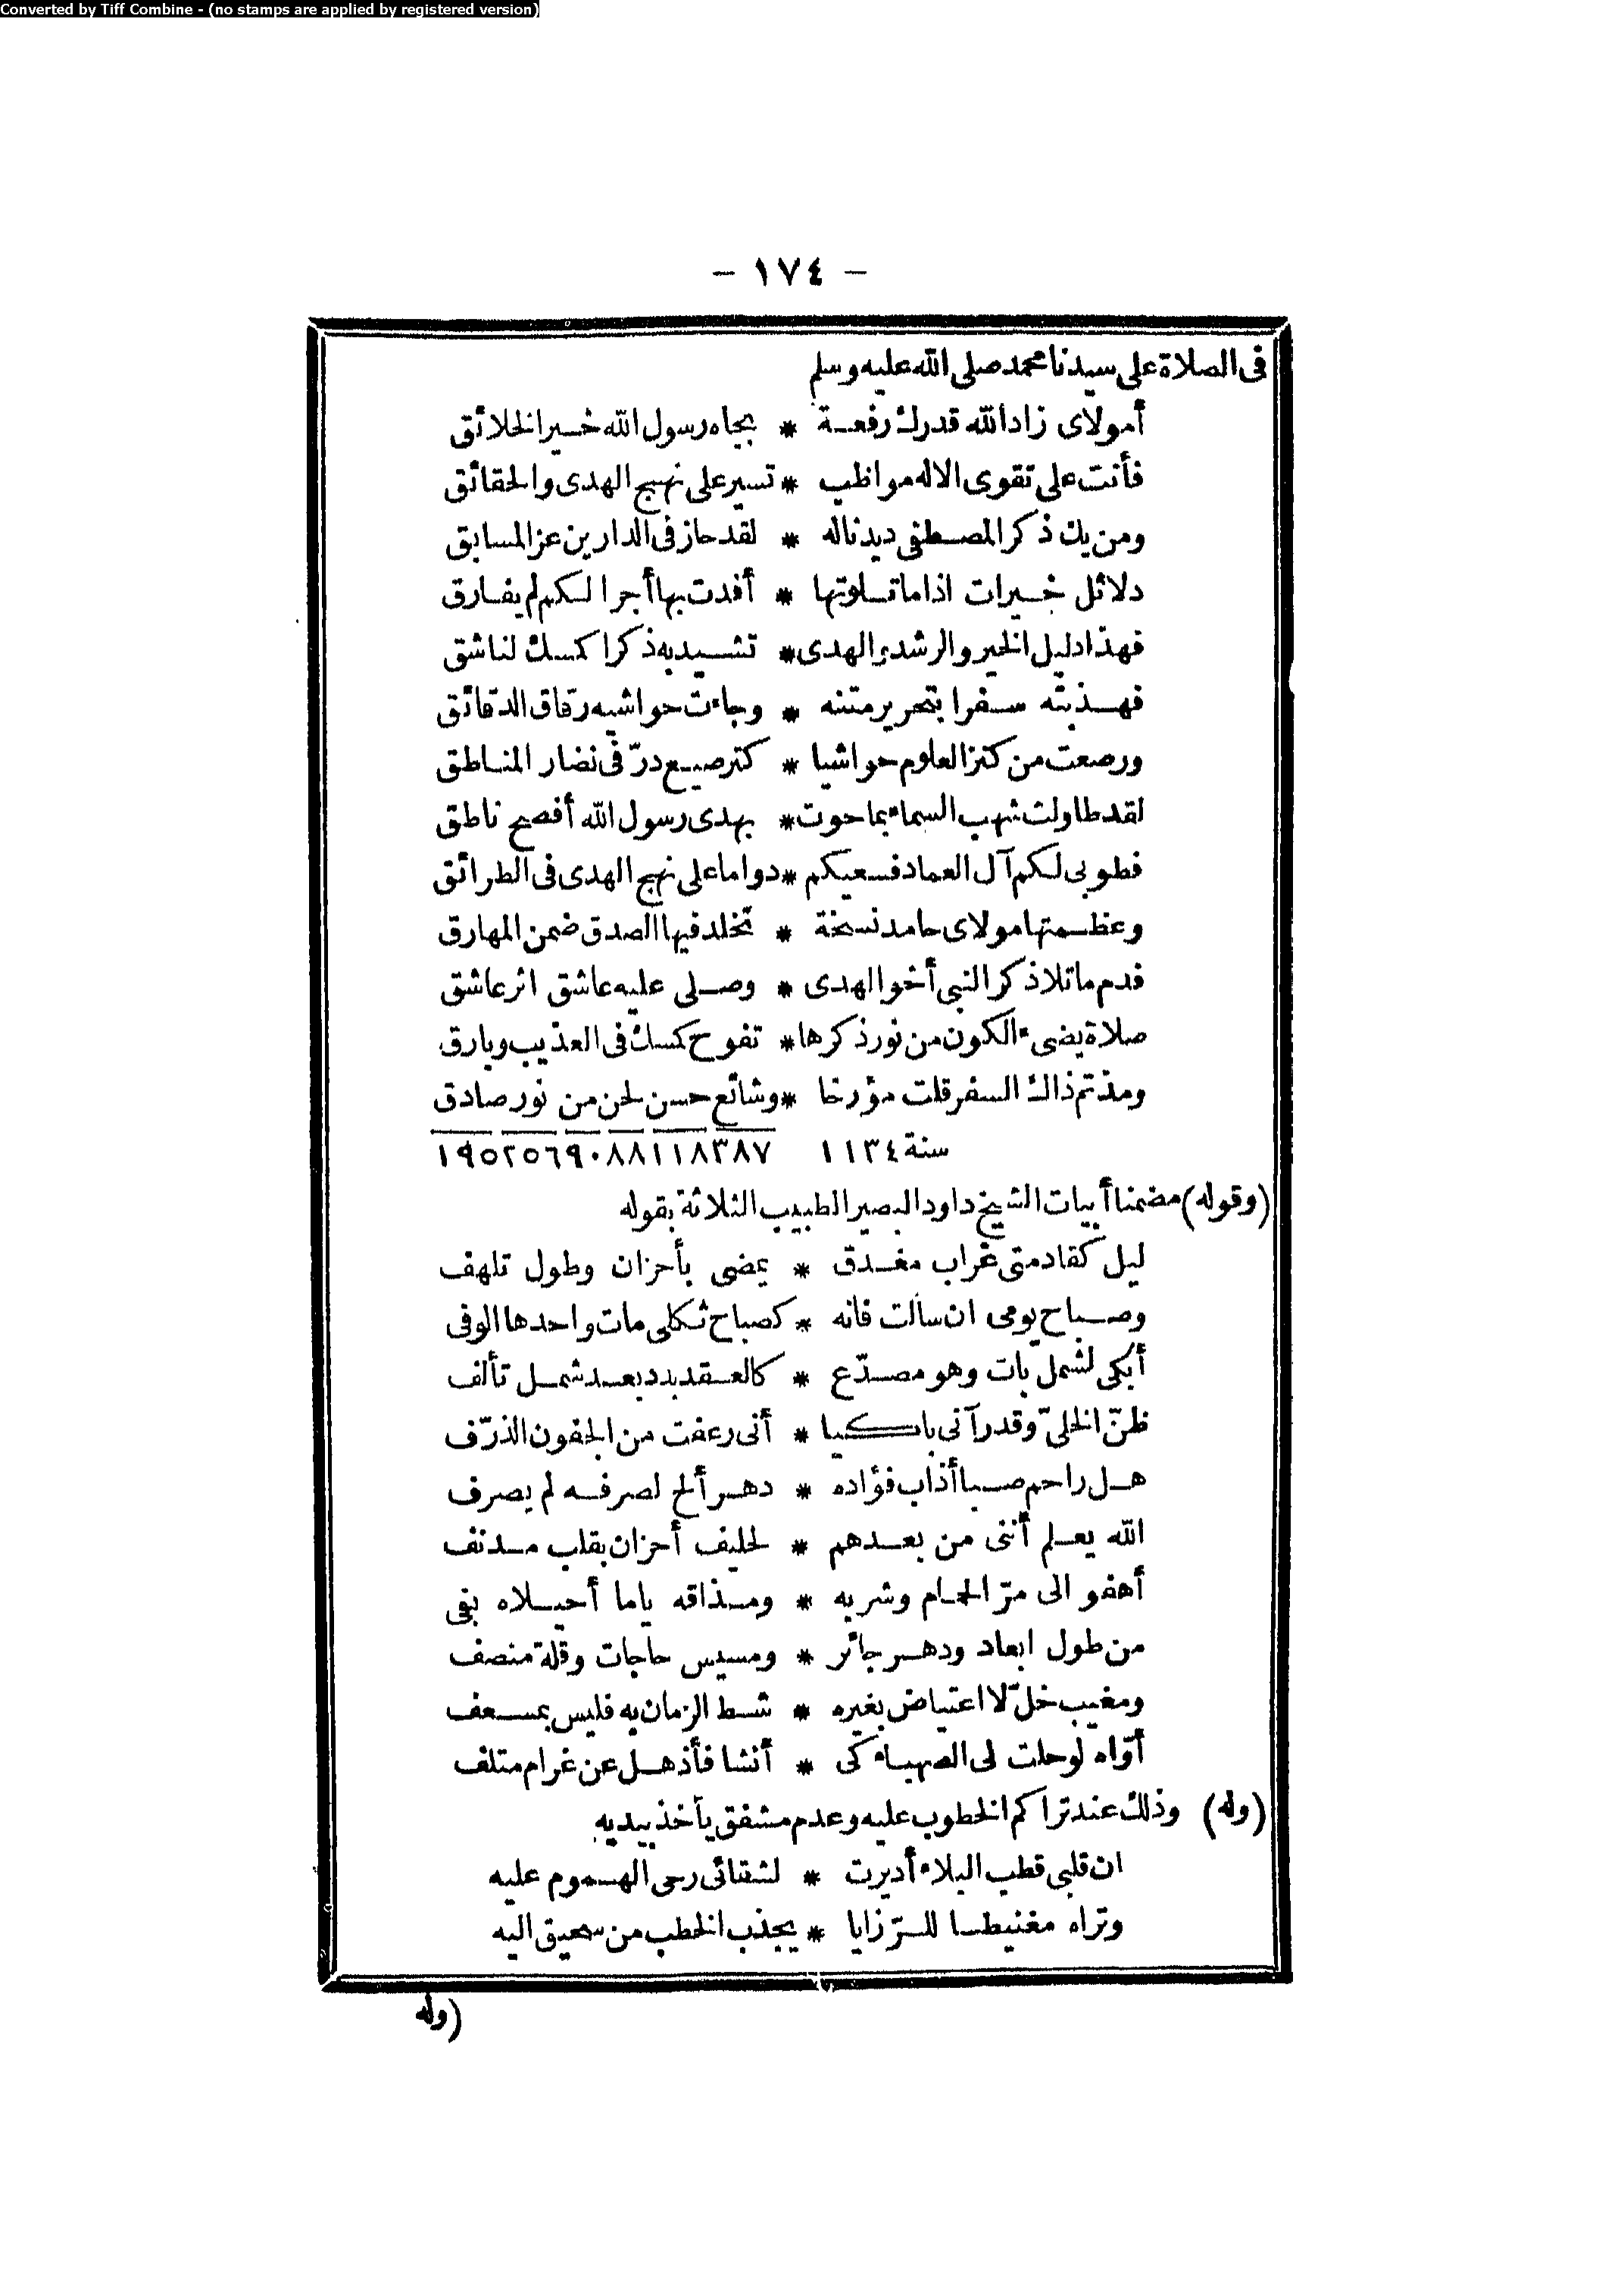 Converted by Tiff Combine - (no stamps are applied by registered version)
— ١٧٤ —
فى الصلاة على سيدنا محمد صلى الله عليه وسلم
أمولاى زاد الله قدرك رفعة * بجاه رسول الله خير الخلائق
فأنت على تقوى الاله مواظب * تسير على نهج الهدى والحقائق
ومن يك ذكر المصطفى ديدنا له * لقد حاز فى الدارين عز المسابق
دلائل خيرات اذا ما تلوتها * أفدت بها أجرا لكم لم يفارق
فهذا دليل الخير والرشد والهدى * تشيد به ذكرا كمسك لناشق
فهذبته سفرا بتحرير متنه * وجاءت حواشيه رقاق الدقائق
ورصعت من كنز العلوم حواشيا * كترصيع درّ فى نضار المناطق
لقد طاولت شهب السماء بما حوت * بهدى رسول الله أفصح ناطق
فطوبى لكم آل العماد فسعيكم * دواما على نهج الهدى فى الطرائق
وعظمتها مولاى حامد نسخة * تخلد فيها الصدق ضمن المهارق
فدم ما تلا ذكر النبي أخو الهدى * وصلى عليه عاشق اثر عاشق
صلاة يضىء الكون من نور ذكرها * تفوح كمسك فى العذيب وبارق
ومذ تم ذاك السفر قلت مؤرخا * وشائع حسن لحن من نور صادق
سنة ١١٣٤ ٣٨٧ ١١٨ ٨٨ ٩٠ ٢٥٦ ١٩٥
(وقوله) مضمنا أبيات الشيخ داود البصير الطبيب الثلاثة بقوله
ليل كقادمتى غراب مغدق * يمضى بأحزان وطول تلهف
وصباح يومى ان سألت فانه * كصباح ثكلى مات واحدها الوفى
أبكى لشمل بات وهو مصدّع * كالعقد بدد بعد شمل تألف
ظنّ الخلىّ وقد رآنى باكيا * أنى رعفت من الجفون الذرّف
هل راحم صبا أذاب فؤاده * دهر ألح لصرفه لم يصرف
الله يعلم أننى من بعدهم * لحليف أحزان بقلب مدنف
أهفو الى مرّ الحمام وشربه * ومذاقه ياما أحيلاه بفى
من طول ابعاد ودهر جائر * ومسيس حاجات وقلة منصف
ومغيب خلّ لا اعتياض بغيره * شط الزمان به فليس بمسعف
أوّاه لو حلت لى الصهباء كى * أنشا فأذهل عن غرام متلف
(وله) وذلك عند تراكم الخطوب عليه وعدم مشفق يأخذ بيديه
ان قلبى قطب البلاء أديرت * لشقائى رحى الهموم عليه
وتراه مغنيطسا للرّزايا * يجذب الخطب من سحيق اليه
(وله